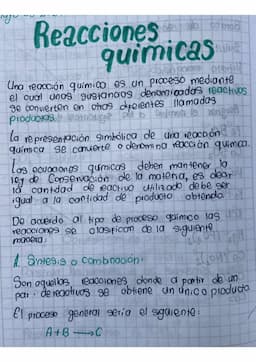 Reacciones
quimicas
Una reacción quimica es un proceso mediante
el cual unas sustancias denominadas reactivos
se convierten en otras diferentes llamadas
productos.
La representación simbólica de una reacción
química se convierte o denomina reacción química.
Las ecuaciones químicas deben mantener la
ley de Conservación de la materia, es decir
la cantidad de reactivo utilizado debe ser
igual a la cantidad de producto obtenido.
De acuerdo al tipo de proceso químico las
reacciones se clasifican de la siguiente
manera:
1. Sintesis o combinación:
Son aquellas reacciones donde a partir de un
par de reactivos se obtiene un único producto
El proceso general sería el siguiente:
A+B → C